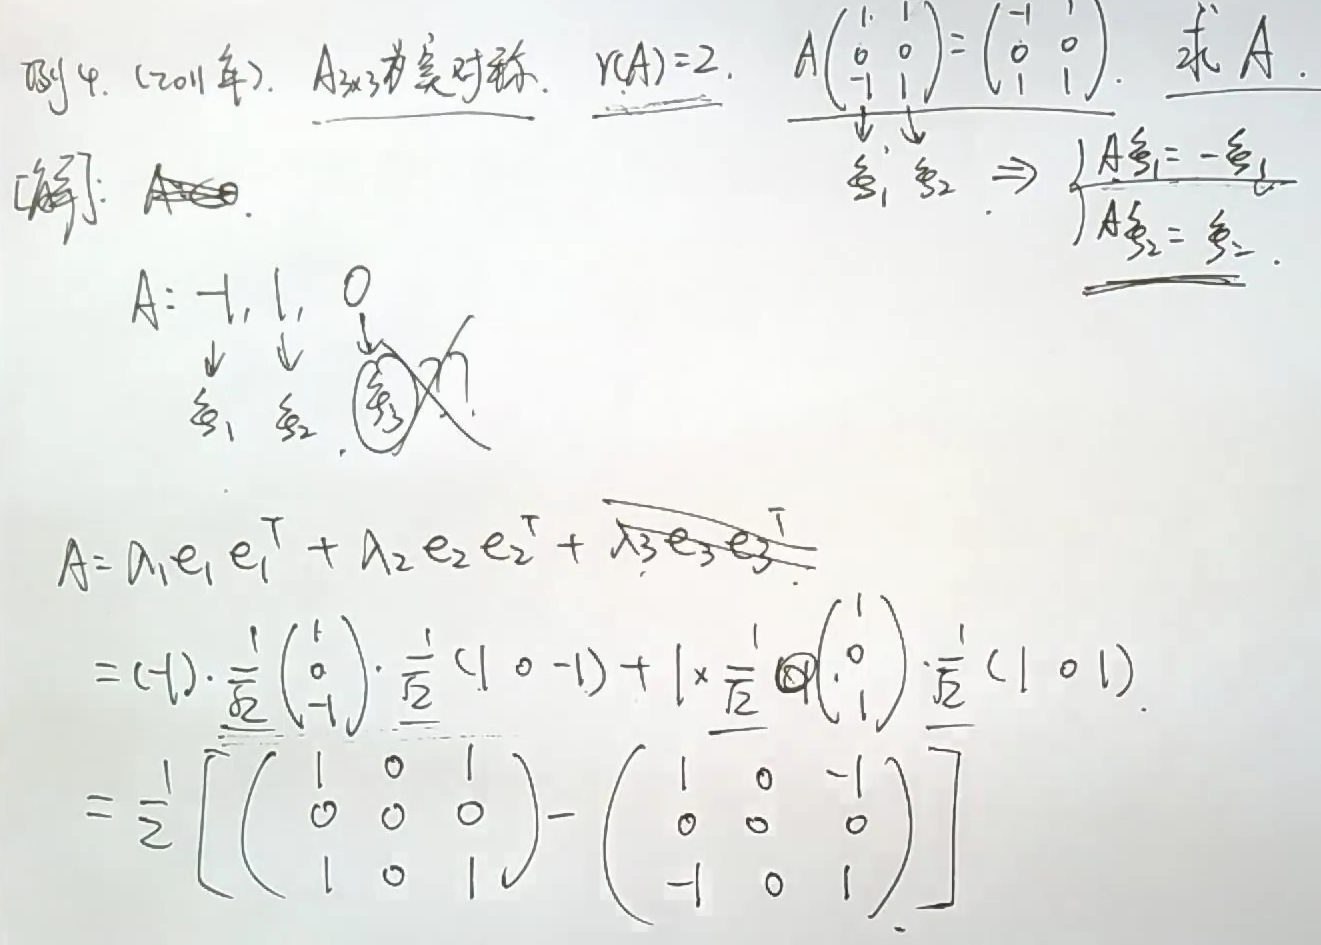 例4. (2011年). A₃ₓ₃为实对称. r(A)=2. A(1 1; 0 0; -1 1)=(-1 1; 0 0; 1 1). 求A.
ξ₁ ξ₂ ⇒ { Aξ₁=-ξ₁
Aξ₂=ξ₂.
[解]:
A: -1, 1, 0
↓ ↓ ↓
ξ₁ ξ₂. ξ₃
A=λ₁e₁e₁ᵀ+λ₂e₂e₂ᵀ+λ₃e₃e₃ᵀ.
=(-1)·1/√2(1; 0; -1)·1/√2(1 0 -1)+1×1/√2(1; 0; 1)·1/√2(1 0 1).
=1/2[(1 0 1; 0 0 0; 1 0 1)-(1 0 -1; 0 0 0; -1 0 1)].